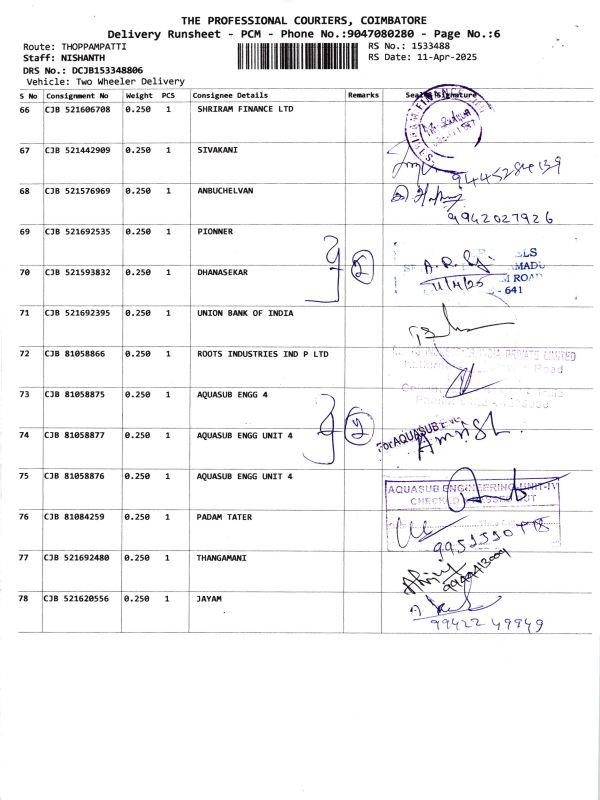 THE PROFESSIONAL COURIERS, COIMBATORE
Delivery Runsheet - PCM - Phone No.:9047080280 - Page No.:6
Route: THOPPAMPATTI
RS No.: 1533488
Staff: NISHANTH
RS Date: 11-Apr-2025
DRS No.: DCJB153348806
Vehicle: Two Wheeler Delivery
S No Consignment No Weight PCS Consignee Details Remarks Seal & Signature
66 CJB 521606708 0.250 1 SHRIRAM FINANCE LTD
67 CJB 521442909 0.250 1 SIVAKANI
9445284139
68 CJB 521576969 0.250 1 ANBUCHELVAN
9942027926
69 CJB 521692535 0.250 1 PIONNER
70 CJB 521593832 0.250 1 DHANASEKAR
11/4/25
- 641
71 CJB 521692395 0.250 1 UNION BANK OF INDIA
72 CJB 81058866 0.250 1 ROOTS INDUSTRIES IND P LTD
INDIA PRIVATE LIMITED
Road
73 CJB 81058875 0.250 1 AQUASUB ENGG 4
74 CJB 81058877 0.250 1 AQUASUB ENGG UNIT 4
For AQUASUB
75 CJB 81058876 0.250 1 AQUASUB ENGG UNIT 4
AQUASUB ENGINEERING UNIT-IV
76 CJB 81084259 0.250 1 PADAM TATER
77 CJB 521692480 0.250 1 THANGAMANI
78 CJB 521620556 0.250 1 JAYAM
99422 49949